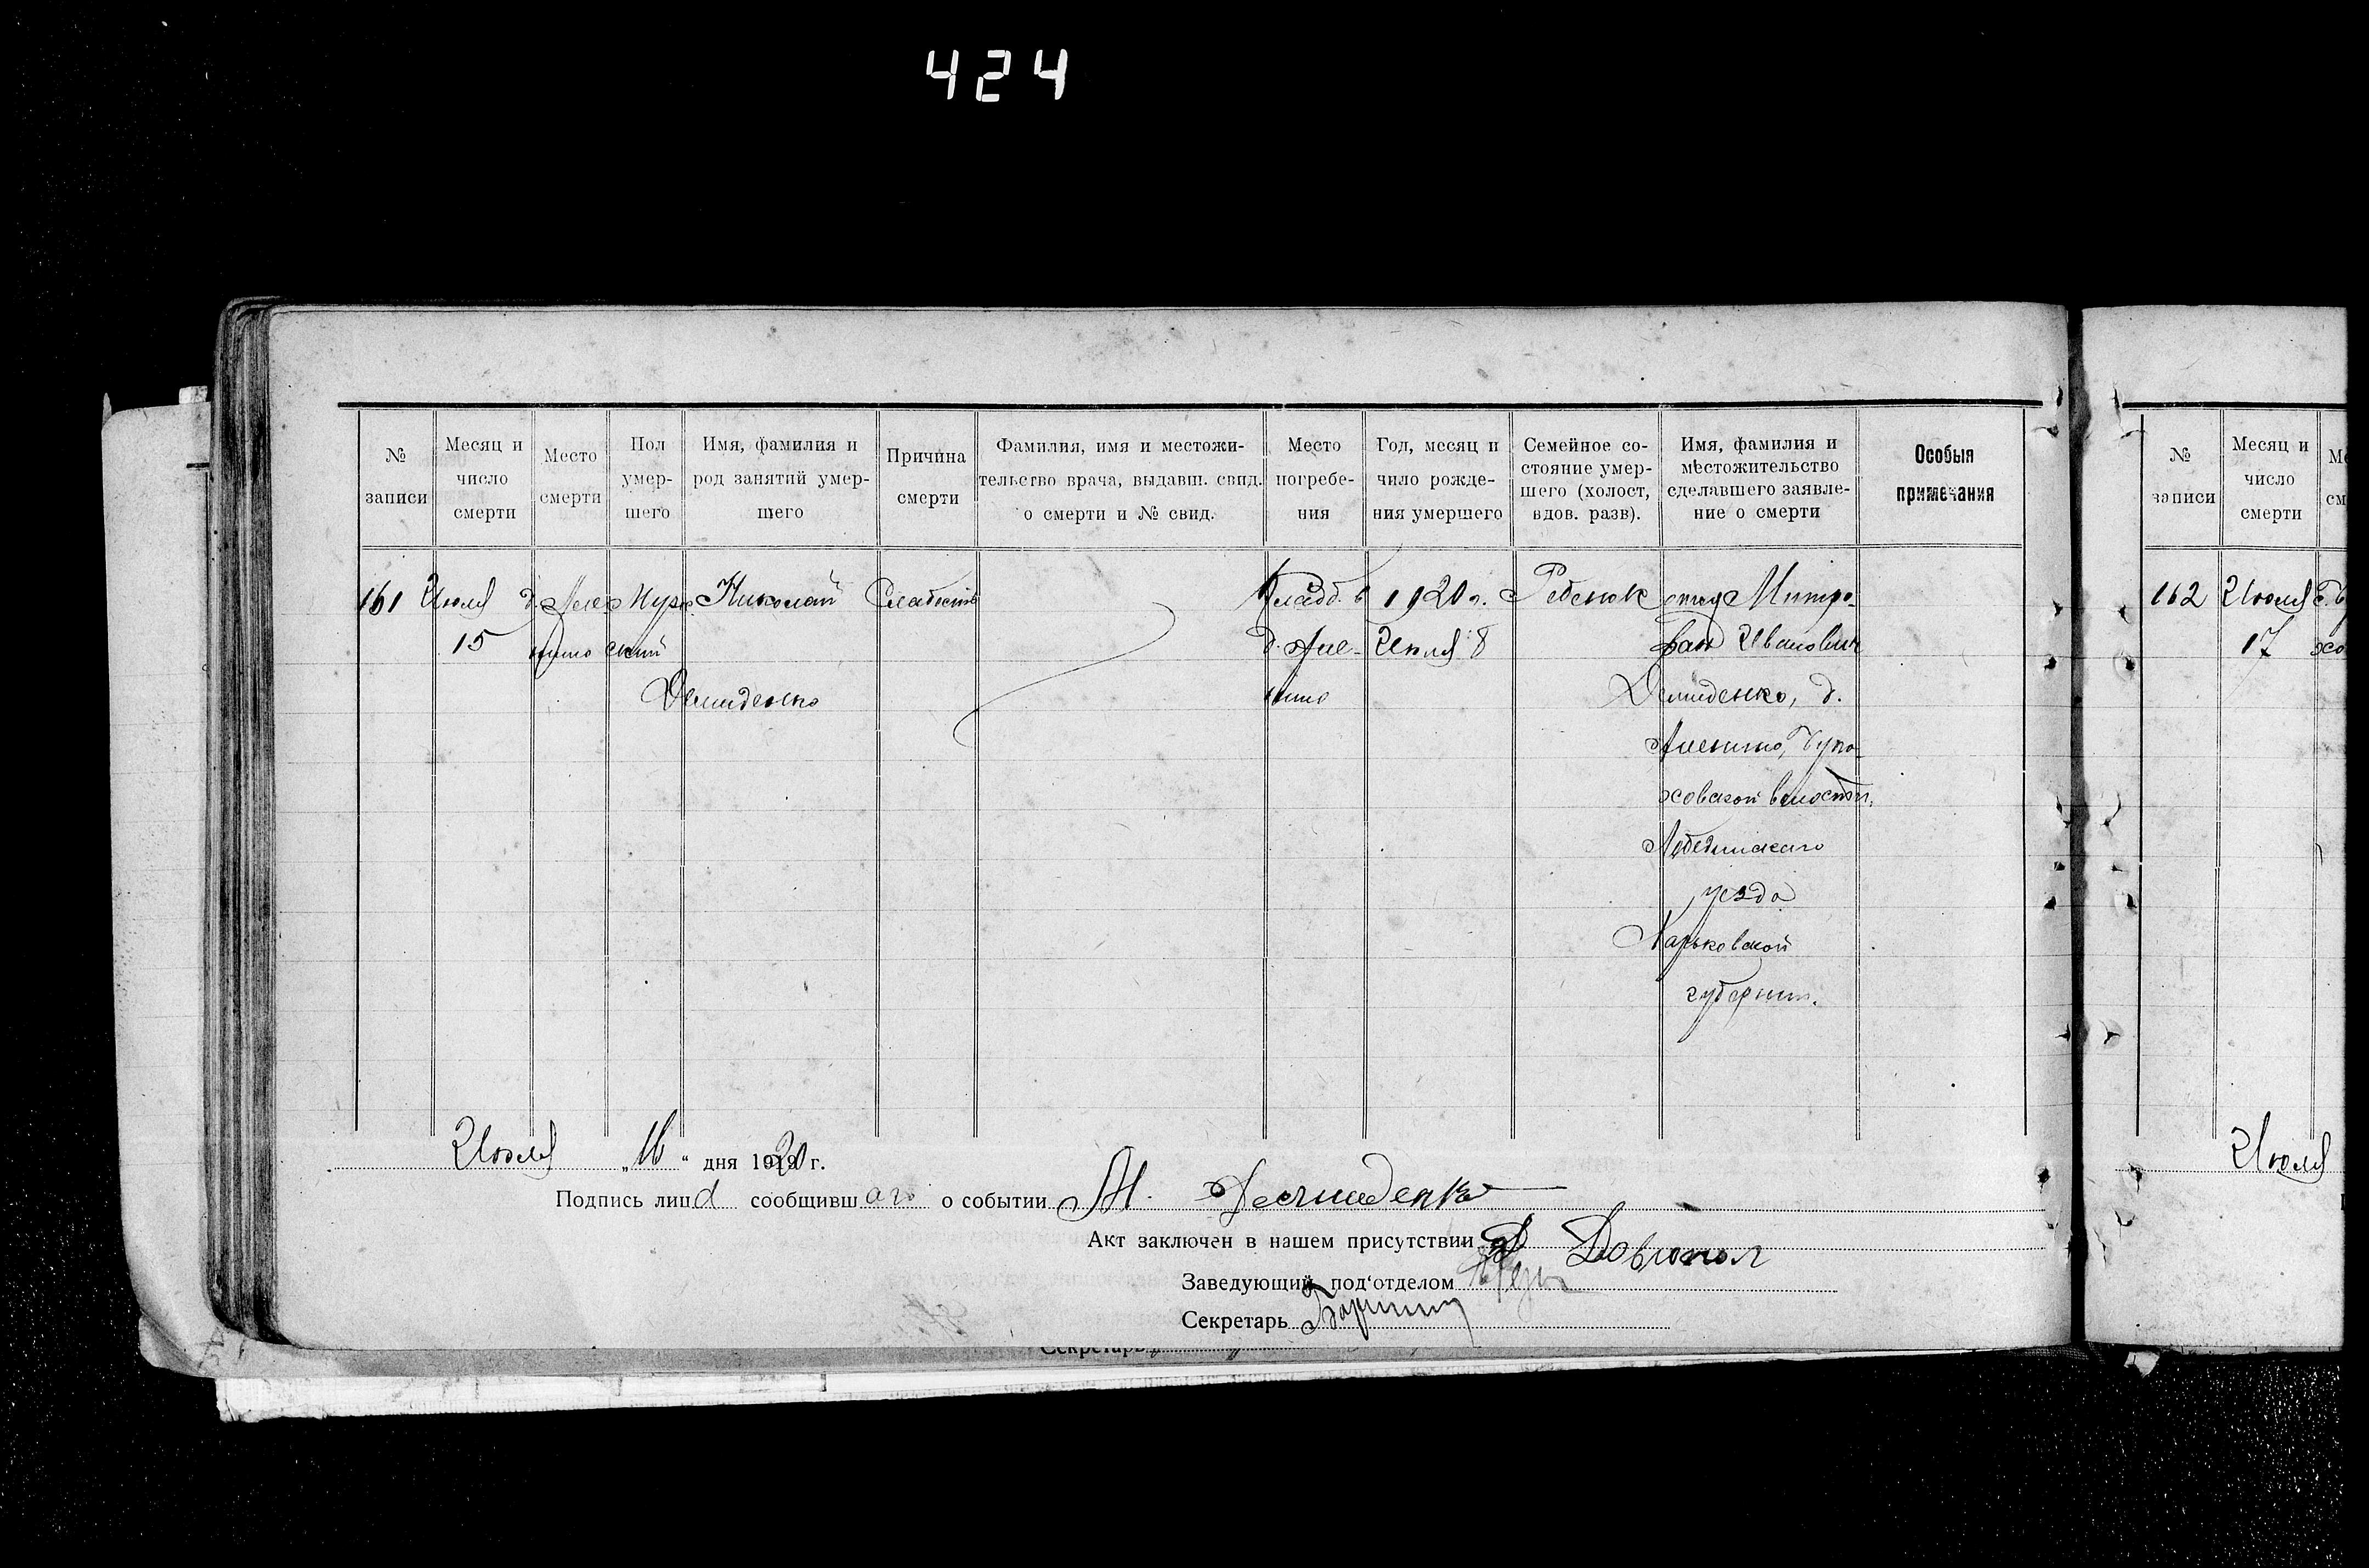 424
№ записи
Месяц и число смерти
Место смерти
Пол умер- шего
Имя, фамилия и род занятий умер- шего
Причина смерти
Фамилия, имя и местожи- тельство врача, выдавш. свид. о смерти и № свид.
Место погребе- ния
Год, месяц и чило рожде- ния умершего
Семейное со- стояние умер- шего (холост, вдов. разв).
Имя, фамилия и местожительство сделавшего заявле- ние о смерти
Особыя примечания
161 Июля д. Мужс Николай Слабость Кладб. в 1920 г. Ребенок отец Митро-
15 ский д. Июля 8 фан Иванович
Демиденко
Демиденко, д.
волости,
Лебединскаго
уезда
Харьковской
губернии.
Июля „16“ дня 1920 г.
Подпись лица сообщившаго о событии М. Демиденко
Акт заключен в нашем присутствии
Заведующий под‘отделом
Секретарь
Секретарь
№ записи
Месяц и число смерти
162 Июля
17
Июля